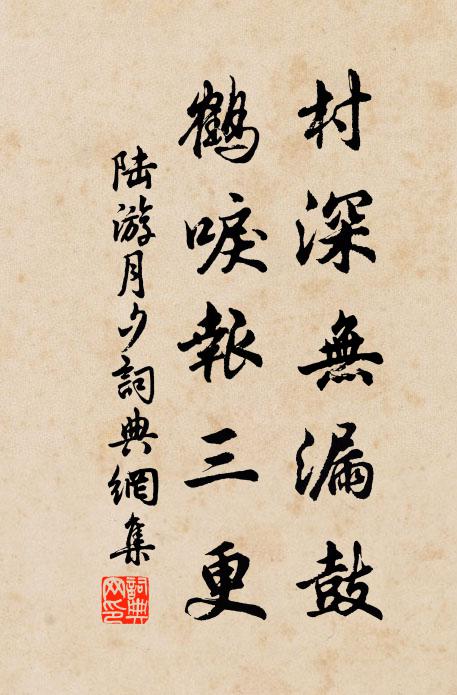 村深無漏鼓
鶴唳報三更
陸游月夕詞典網集
詞典
网印